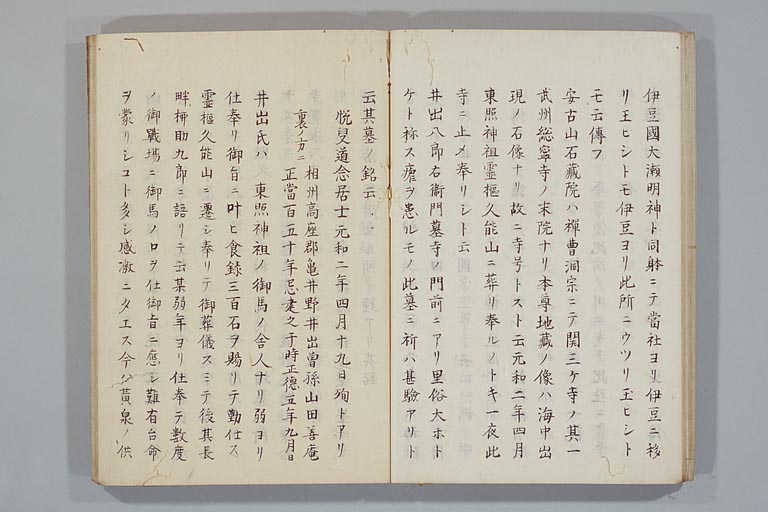 伊豆國大瀬明神ト同躰ニテ當社ヨリ伊豆ニ移
リ玉ヒシトモ伊豆ヨリ此所ニウツリ玉ヒシト
モ云傳フ
安古山石藏院ハ禪曹洞宗ニテ関三ケ寺ノ其一
武州総寧寺ノ末院ナリ本尊地藏ノ像ハ海中出
現ノ石像ナリ故ニ寺号トスト云元和二年四月
東照神祖靈柩久能山ニ葬リ奉ルノトキ一夜此
寺ニ止メ奉リシト云
井出八郎右衛門墓寺ノ門前ニアリ里俗大ホト
ケト称ス瘧ヲ患ルモノ此墓ニ祈ハ甚驗アリト
云其墓ノ銘云
悦叟道念居士元和二年四月十九日殉トアリ
裏ノ方ニ
相州高座郡亀井野井出曽孫山田善庵
正當百五十年忌建之于時正徳五年九月日
井出氏ハ東照神祖ノ御馬ノ舎人ナリ弱ヨリ
仕奉リ御旨ニ叶ヒ食録三百石ヲ賜リテ勤仕ス
靈柩久能山ニ遷シ奉リテ御葬儀スミテ後其長
畔柳助九郎ニ語リテ云某弱年ヨリ仕奉テ数度
ノ御戰場ニ御馬ノ口ヲ仕御旨ニ應シ難有台命
ヲ蒙リシコト多シ感激ニタエス今ハ黄泉ノ供